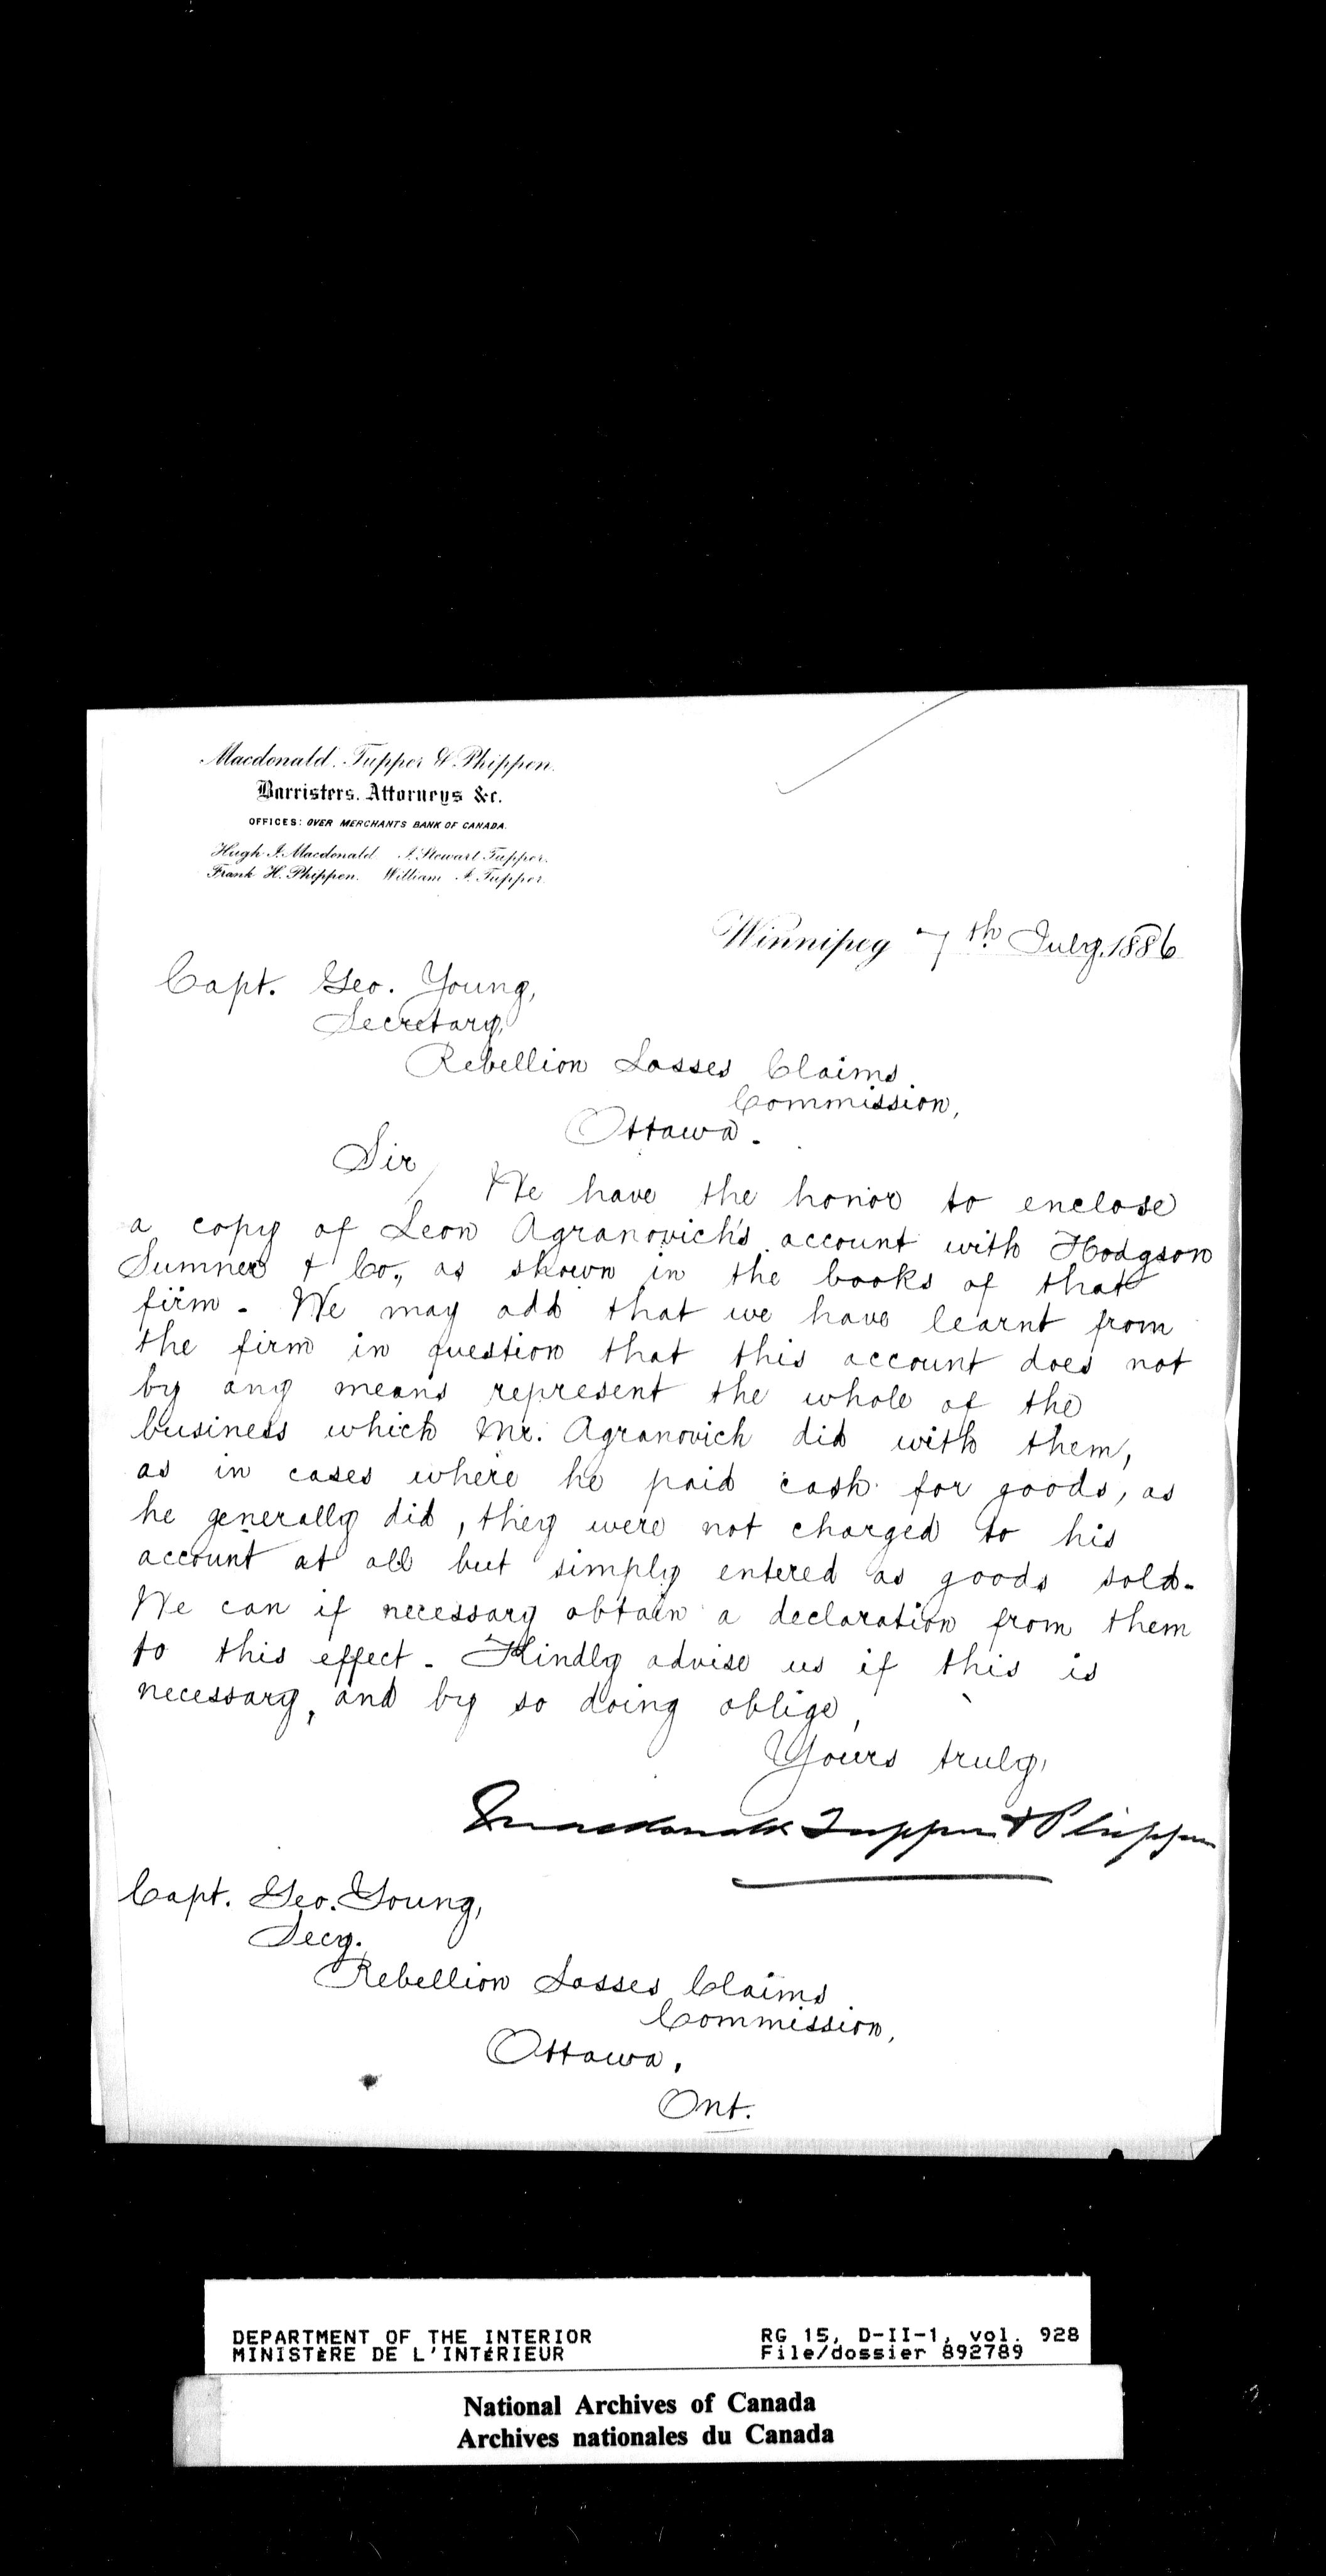 Macdonald, Tupper & Phippen.
Barristers, Attorneys &c.
OFFICES: OVER MERCHANTS BANK OF CANADA.
Hugh J. Macdonald J. Stewart Tupper.
Frank H. Phippen. William J. Tupper.
Winnipeg 7th July, 1886
Capt. Geo. Young,
Secretary,
Rebellion Losses Claims
Commission,
Ottawa.
Sir,
We have the honor to enclose
a copy of Leon Agranovich's account with Hodgson
Sumner & Co., as shown in the books of that
firm. We may add that we have learnt from
the firm in question that this account does not
by any means represent the whole of the
business which Mr. Agranovich did with them,
as in cases where he paid cash for goods, as
he generally did, they were not charged to his
account at all but simply entered as goods sold.
We can if necessary obtain a declaration from them
to this effect. Kindly advise us if this is
necessary, and by so doing oblige,
Yours truly,
Macdonald Tupper & Phippen
Capt. Geo. Young,
Secy.
Rebellion Losses Claims
Commission,
Ottawa,
Ont.
DEPARTMENT OF THE INTERIOR RG 15, D-II-1, vol. 928
MINISTÈRE DE L'INTÉRIEUR File/dossier 892789
National Archives of Canada
Archives nationales du Canada